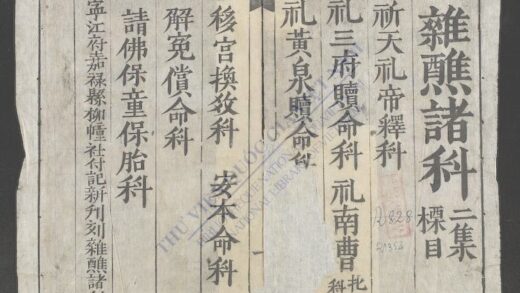 雜醮諸科
二集
標目
祈天礼帝釋科
礼三府贖命科 礼南曹
科
礼黃泉贖命科
移宮換科 安本命科
解冤償命科
請佛保童保胎科
寧江府嘉禄縣柳幢社付記新刊刻雜醮諸
THƯ VIỆN QUỐC GIA
NATIONAL LIBRARY